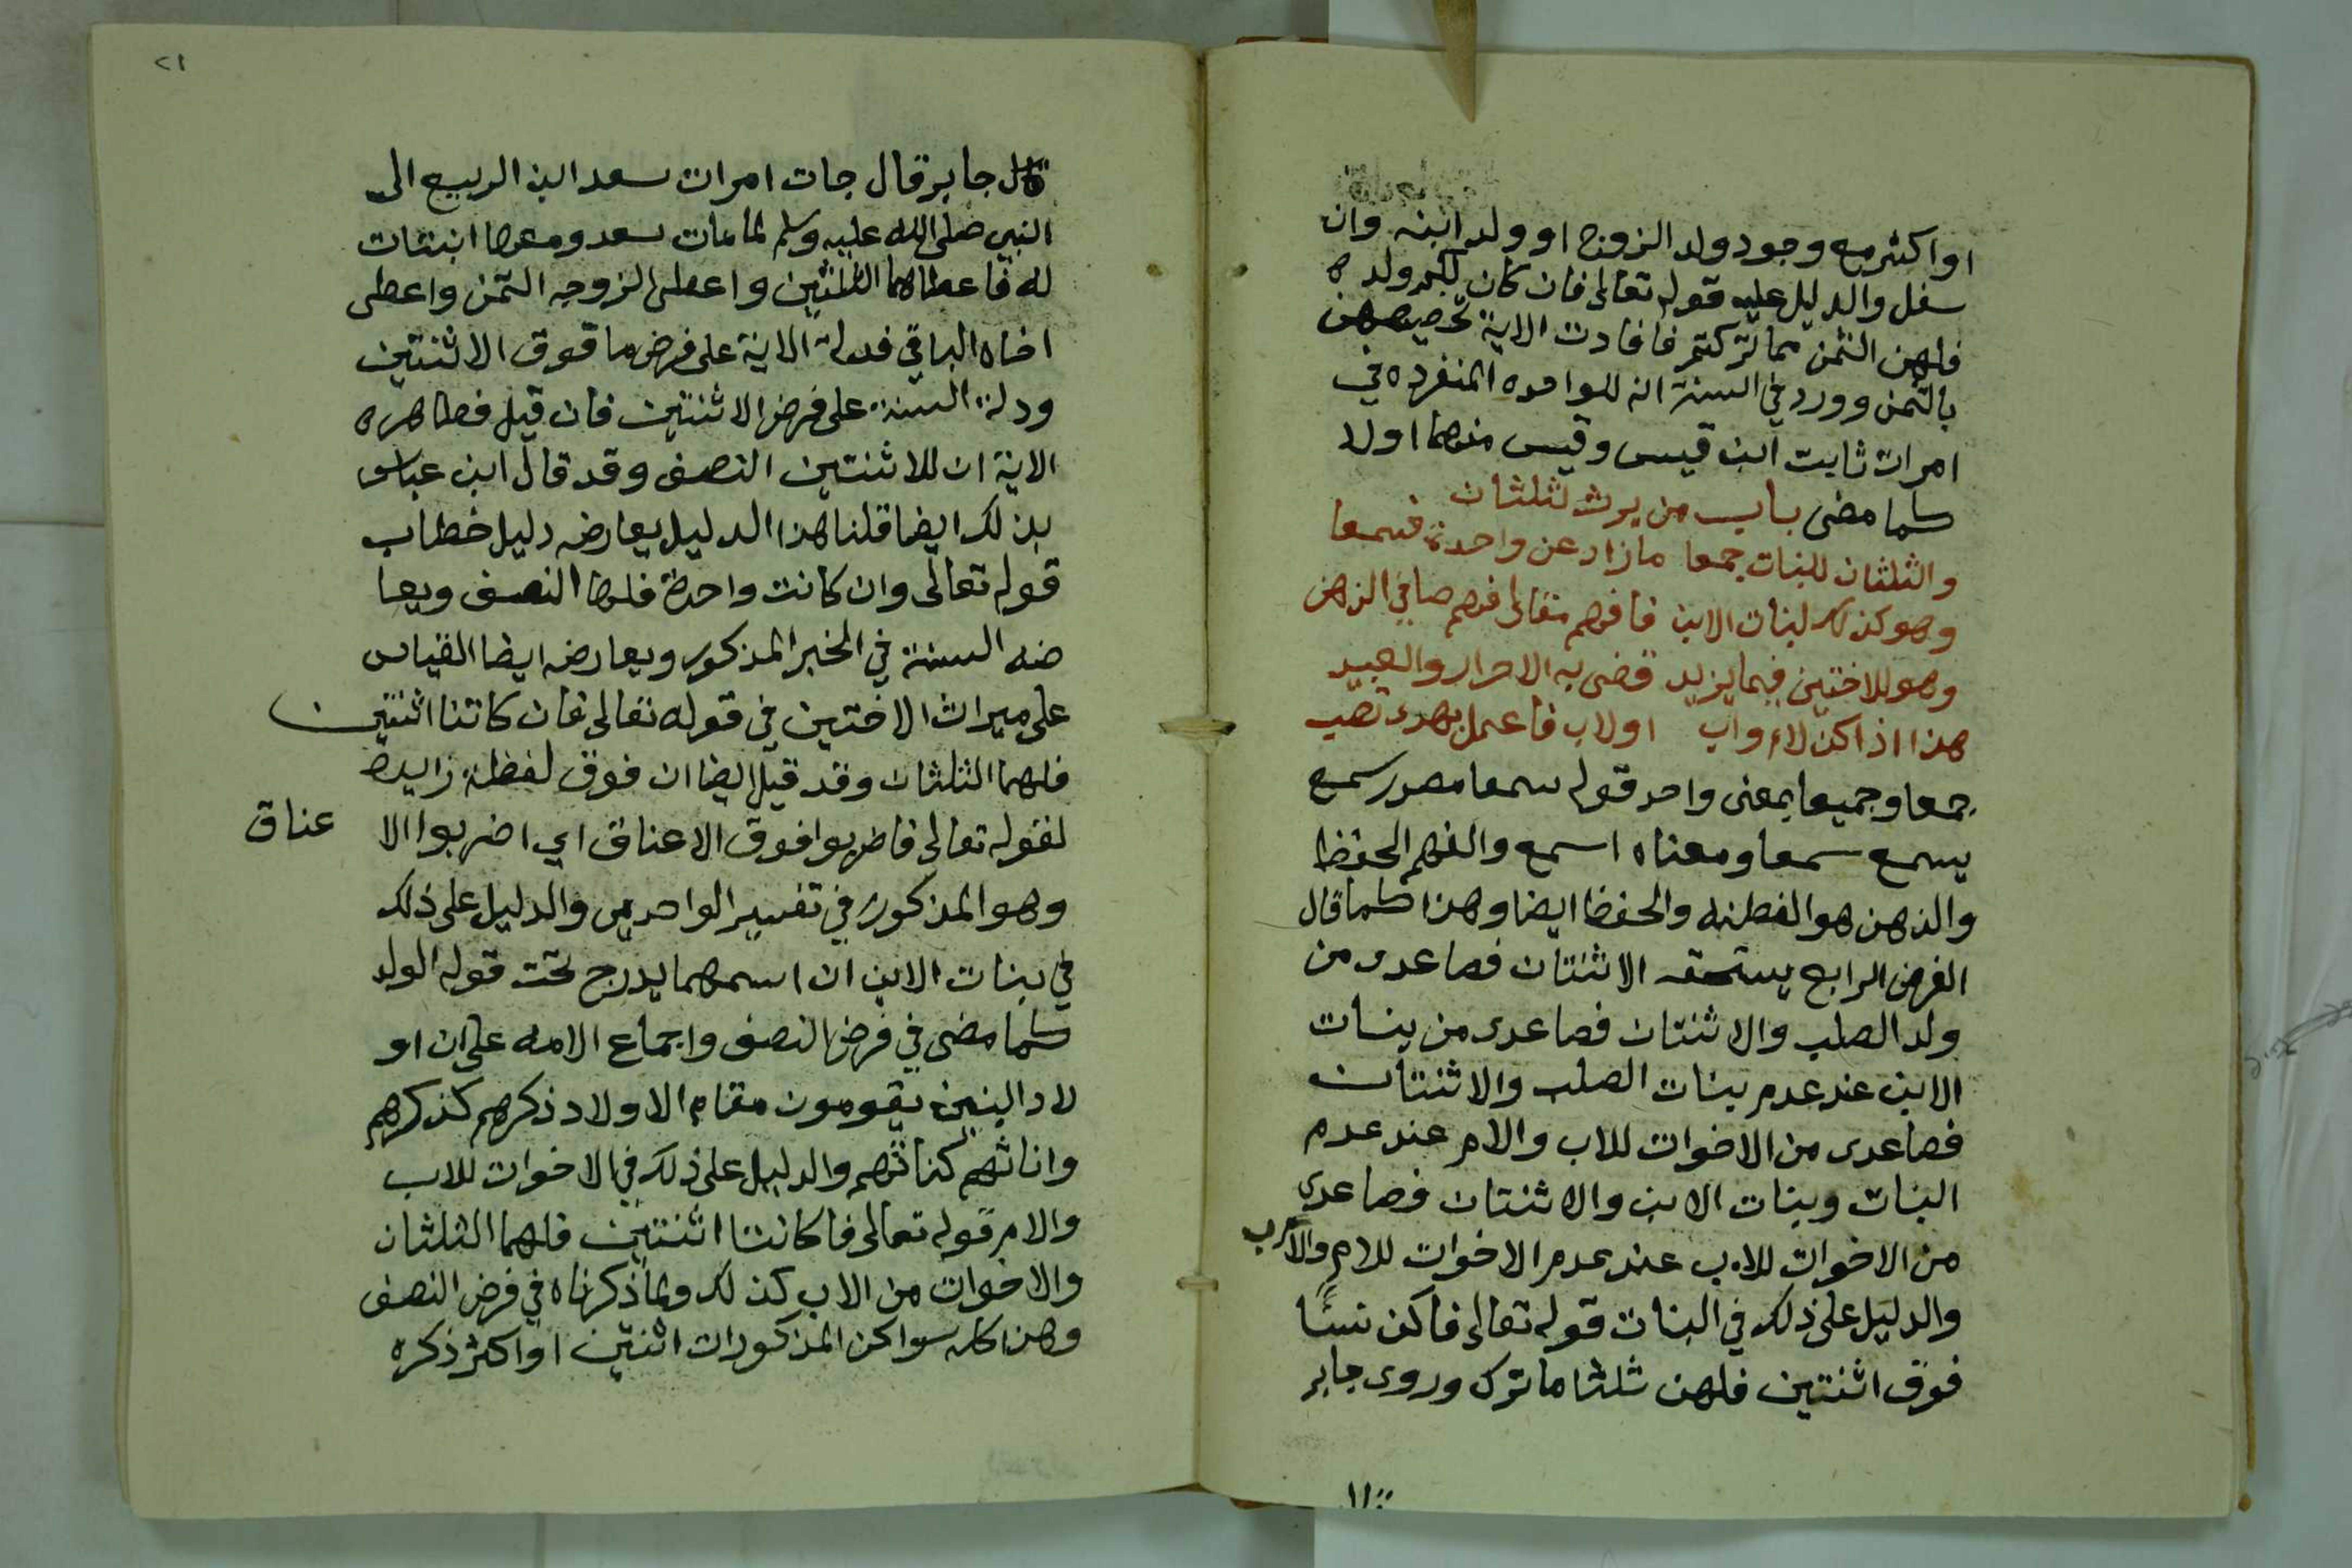 او اكثر مع وجود ولد الزوج او ولد ابنه وان
سفل والدليل عليه قوله تعالى فان كان لكم ولد ه
فلهن الثمن مما تركتم فافادت الاية تخصيصهن
بالثمن وورد في السنة انه للواحده المنفرده في
امرات ثابت ابن قيس وقيس منهما اولا
كما مضى باب من يرث لثلثان
والثلثان للبنات جمعا مازاد عن واحدة فسمعا
وهو كذلك لبنات الابن فافهم مقالى فهم صافي الذهن
وهو للاختين فيما يزيد قضى به الاحرار والعبيد
هذا اذا كن لام واب اولاب فاعمل بهدى تصب
جمعا وجميعا بمعنى واحد قوله سمعا مصدر سمع
يسمع سمعا ومعناه اسمع والفهم الحفظ
والذهن هو الفطنه والحفظ ايضا وهذا كما قال
الفرض الرابع يستحقه الاثنتان فصاعدى من
ولد الصلب والاثنتان فصاعدى من بنات
الابن عند عدم بنات الصلب والاثنتان
فصاعدى من الاخوات للاب والام عند عدم
البنات وبنات الابن والاثنتان فصاعدى
من الاخوات للاب عند عدم الاخوات للام والاب
والدليل على ذلك في البنات قوله تعالى فاكن نسًا
فوق اثنتين فلهن ثلثا ما ترك وروى جابر
٢١
قال جابر قال جات امرات سعد ابن الربيع الى
النبي صلى الله عليه وسلم لما مات سعد ومعها ابنتات
له فاعطاهما الثلثين واعطى الزوجه الثمن واعطى
اخاه الباقي فدلة الاية على فرض ما فوق الاثنتين
ودلة السنة على فرض الاثنتين فان قيل فظاهره
الاية ان للاثنتين النصف وقد قال ابن عباس
بذلك ايضا قلنا هذا الدليل يعارضه دليل خطاب
قوله تعالى وان كانت واحدة فلها النصف ويعا
ضه السنة في الخبر المذكور ويعارضه ايضا القياس
على ميراث الاختين في قوله تعالى فان كانتا اثنتين
فلهما الثلثان وقد قيل ايضا ان فوق لفظة زايدة
لقوله تعالى فاضربوا فوق الاعناق اي اضربوا الا عناق
وهو المذكور في تفسير الواحدي والدليل على ذلك
في بنات الابن ان اسمهما يدرج تحت قوله الولد
كما مضى في فرض النصف واجماع الامه على ان او
لاد البنين يقومون مقام الاولاد ذكرهم كذكرهم
واناثهم كناثهم والدليل على ذلك في الاخوات للاب
والام قوله تعالى فا كانتا اثنتين فلهما الثلثان
والاخوات من الاب كذلك ولما ذكرناه في فرض النصف
وهذا كله سوا كن المذكورات اثنتين او اكثر ذكره